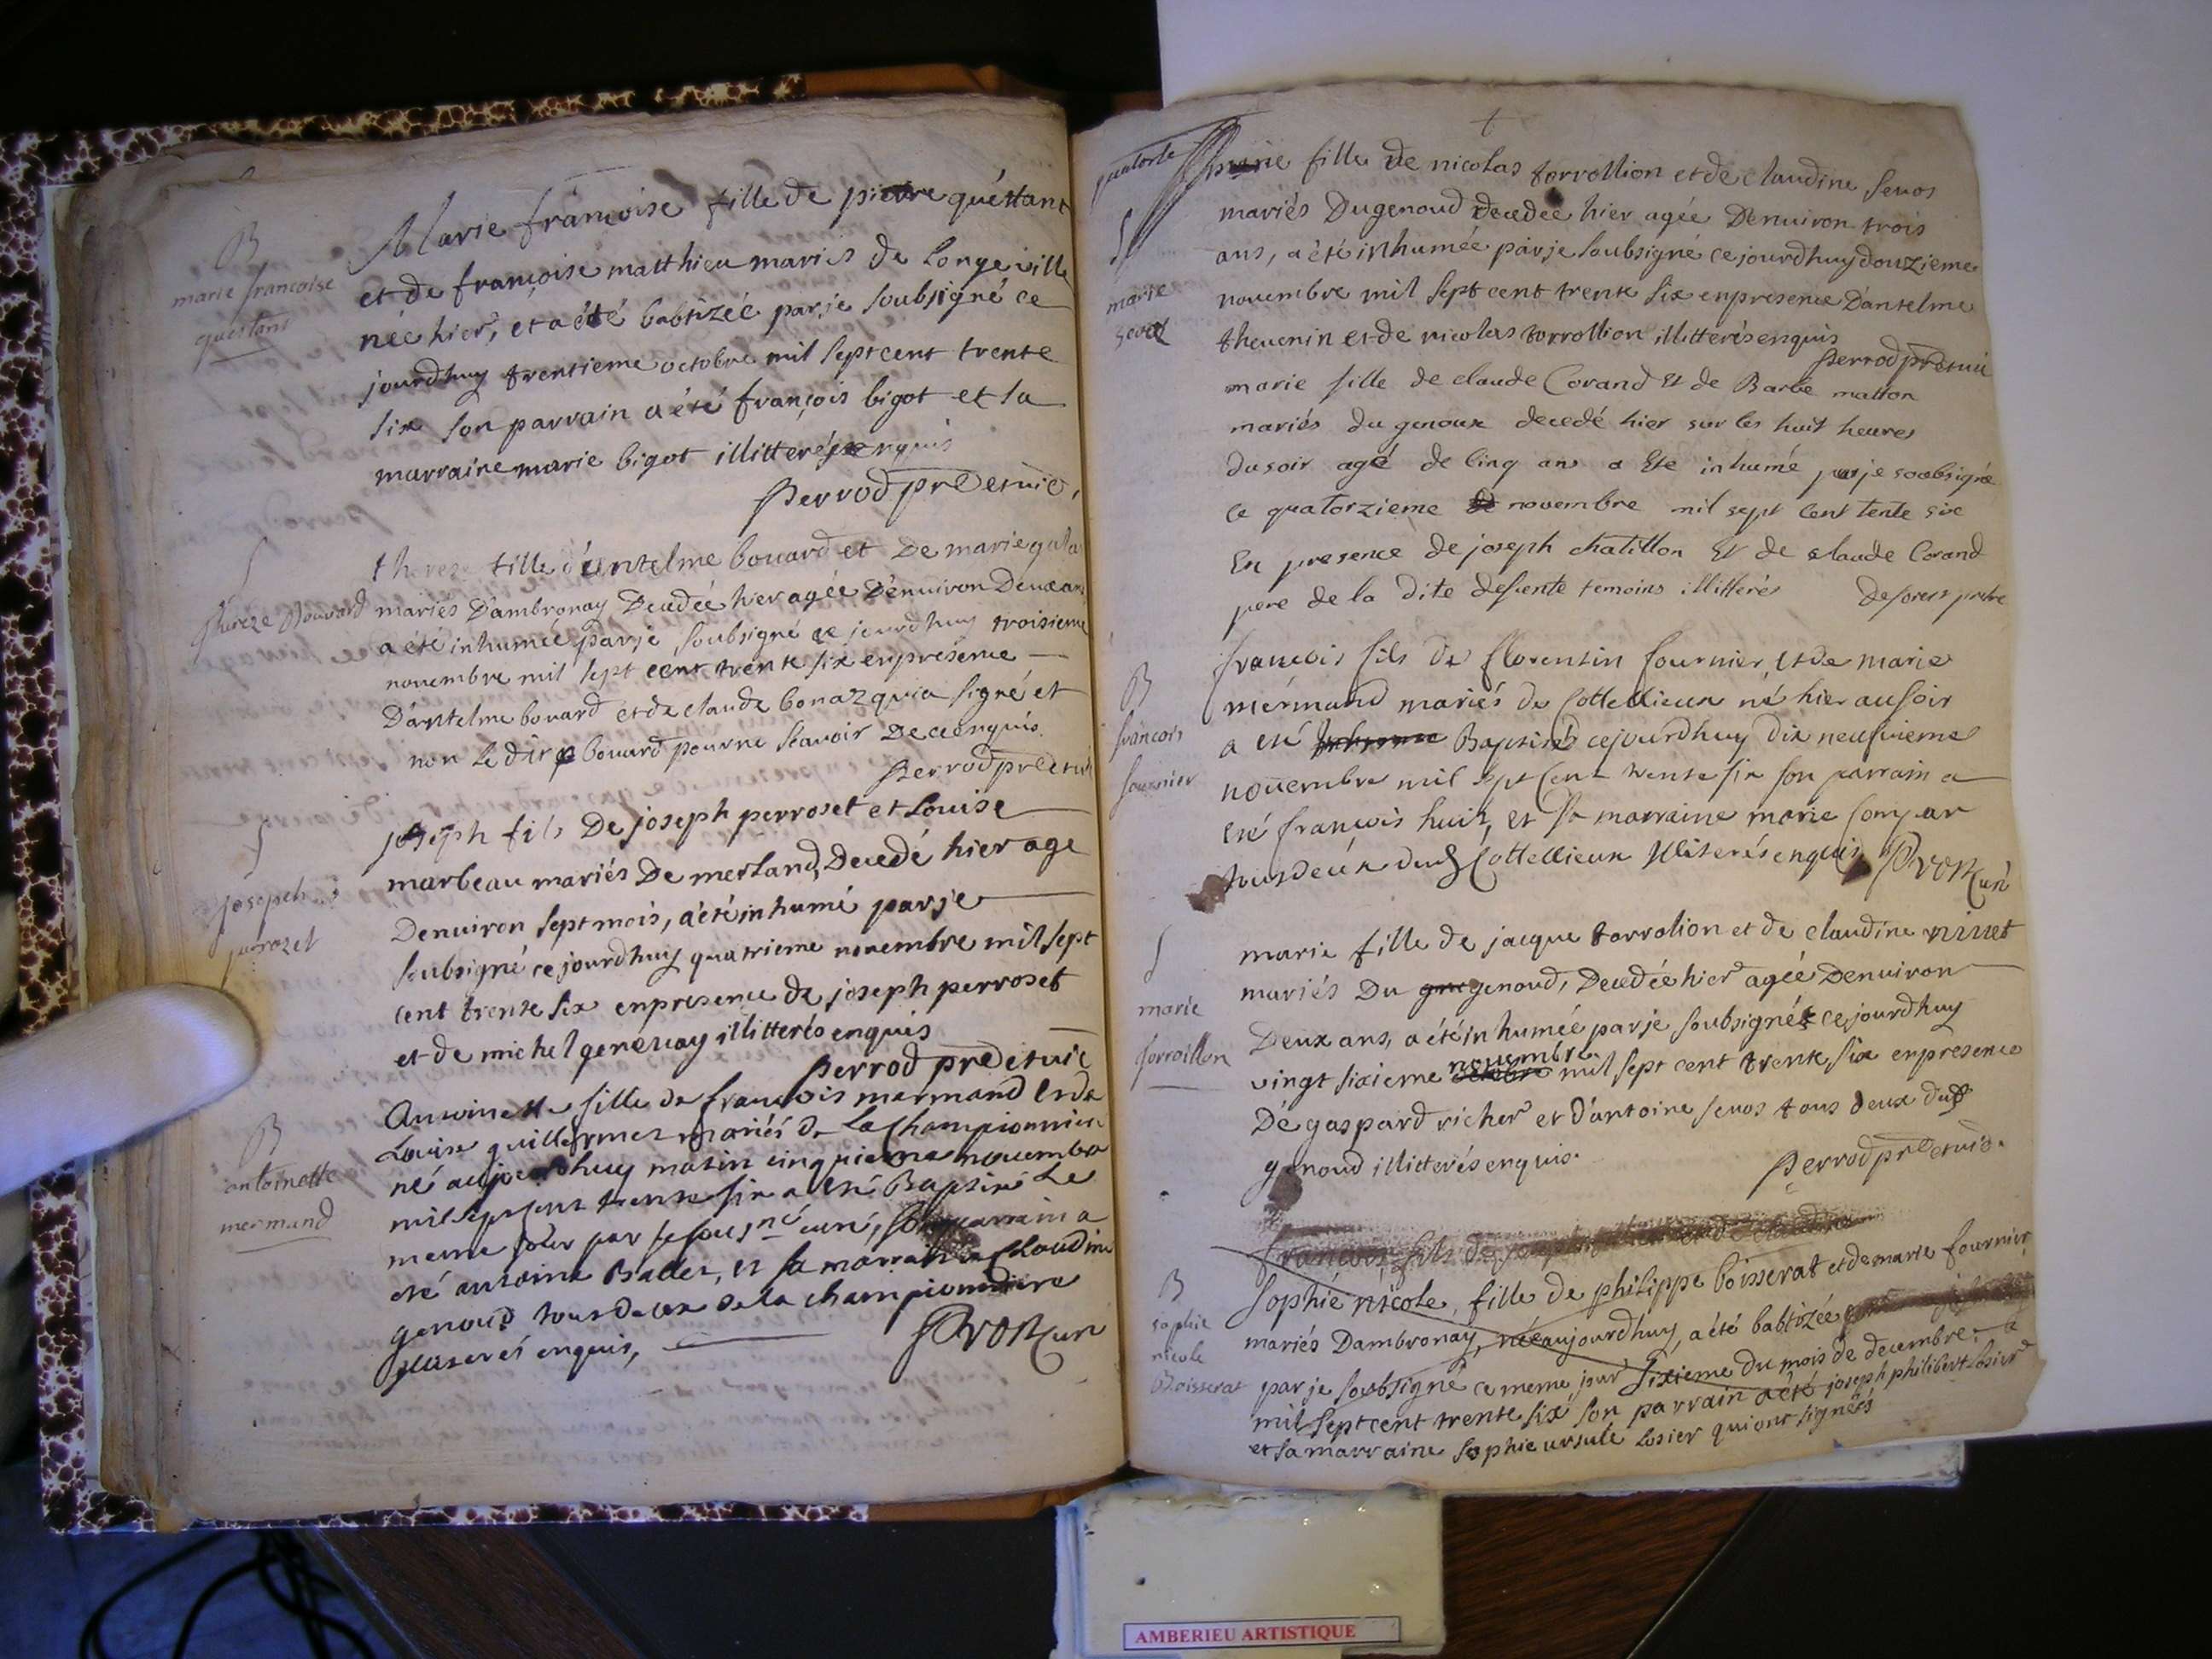 B
marie francoise
questant
Marie françoise fille de pierre quéstant
et de françoise matthieu mariés de Longeville
née hier, et a été babtizée par je soubsigné ce
jourdhuy trentieme octobre mil sept cent trente
six son parrain a été françois bigot et sa
marraine marie bigot illitterés enquis
perrod pre et vic.
S
thereze Bouvard
therese fille d'antelme bouard et de marie
mariés Dambronay Decedée hier agée Denuiron Deux ans
a été inhumée par je soubsigné ce jourdhuy troisieme
novembre mil sept cent trente six en presence
D'antelme bouard et de claude bonaz qui a signé et
non le dit bouard pour ne scavoir De ce enquis.
perrod pre et vic
S
joseph
perrozet
joseph fils De joseph perroset et Louise
marbeau mariés De merland, Decedé hier age
Denuiron sept mois, a été inhumé par je
soubsigné ce jourdhuy quatrieme novembre mil sept
cent trente six en presence de joseph perroset
et de michel genevay illitterés enquis
perrod pre et vic
B
antoinette
mermand
Antoinette fille de françois mermand et de
Louise guillermet mariés de La Championniere
né aujourdhuy matin cinquieme novembre
mil sept cent trente six a eté Baptisé Le
meme jour par je sousné curé, son parrain a
eté antoine Ballet, et sa marraine Claudine
genoud tous deux de la championniere
illiterés enquis,
quatorle
S
marie
fille de nicolas torrollion et de claudine sevos
mariés Du genoud decedee hier agée Denuiron trois
ans, a été inhumée par je soubsigné ce jourdhuy douzieme
novembre mil sept cent trente six en presence D'antelme
thevenin et de nicolas torrollion illitterés enquis
perrod pre et vic
marie fille de claude Corand Et de Barbe matton
mariés du genoux decedé hier sur les huit heures
du soir agé de cinq ans a Ete inhumé par je soubsigné
ce quatorzieme de novembre mil sept cent tente six
En presence de joseph chatillon Et de claude Corand
pere de la dite defunte temoins illitterés
deforest pretre
B
francois
fournier
françois fils de florentin fournier et de marie
mermand mariés de Cottellieux né hier au soir
a eté Baptisé cejourdhuy dix neufvieme
novembre mil sept cent trente six son parrain a
eté françois huit, et sa marraine marie
tous deux dud Cottellieux illiterés enquis
S
marie
torroillon
marie fille de jacque torrolion et de claudine ninet
mariés Du gne genoud, Decedée hier agée Denuiron
Deux ans, a été inhumée par je soubsigné ce jourdhuy
vingt sixieme octobre novembre mil sept cent trente six en presence
De gaspard richer et D'antoine sevos tous deux dud
genoud illitterés enquis.
perrod pre et vic.
françois fils de
B
sophie
nicole
Boisserat
Sophie nicole, fille de philippe boisserat et de marie fournier
mariés Dambronay, née aujourdhuy, a été babtizée
par je soubsigné ce meme jour sixieme du mois de decembre
mil sept cent trente six son parrain a été joseph philibert Losier
et sa marraine sophie ursule Losier qui ont signés
AMBERIEU ARTISTIQUE